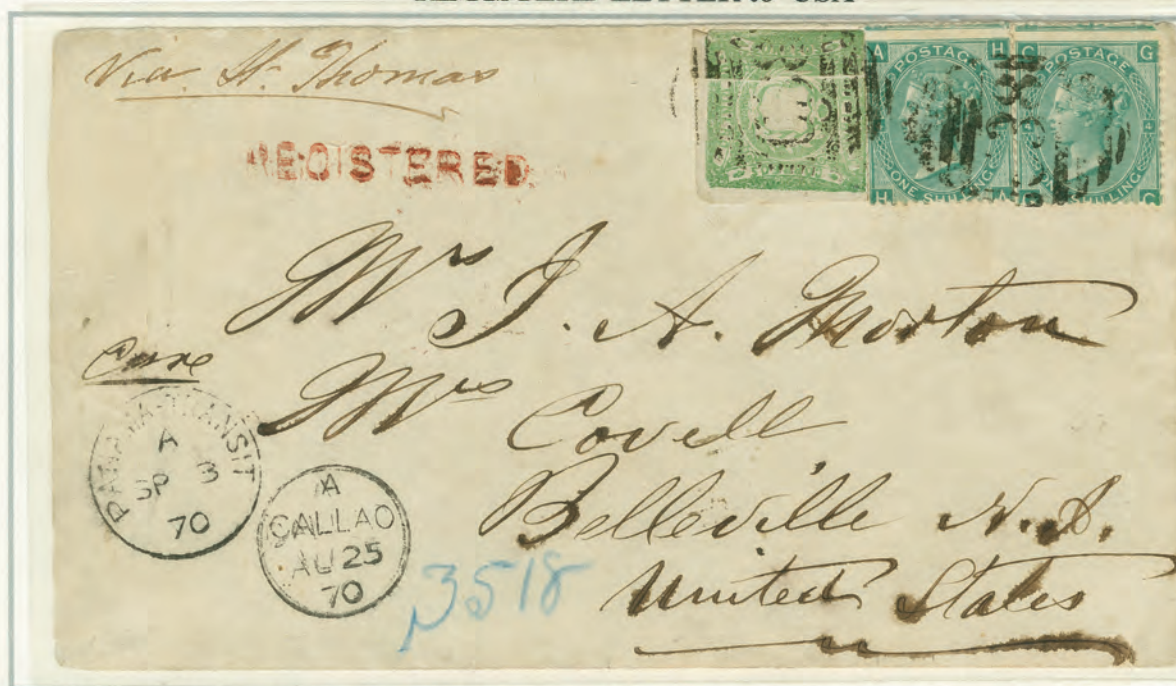 REGISTERED LETTER to USA
Via St. Thomas
REGISTERED
A POSTAGE H
ONE SHILLING
H A
C POSTAGE G
ONE SHILLING
G C
C38
Mrs J. A. Morton
Care
Mrs Covell
Belleville N.J.
United States
PANAMA TRANSIT
A
SP 3
70
A
CALLAO
AU 25
70
3518